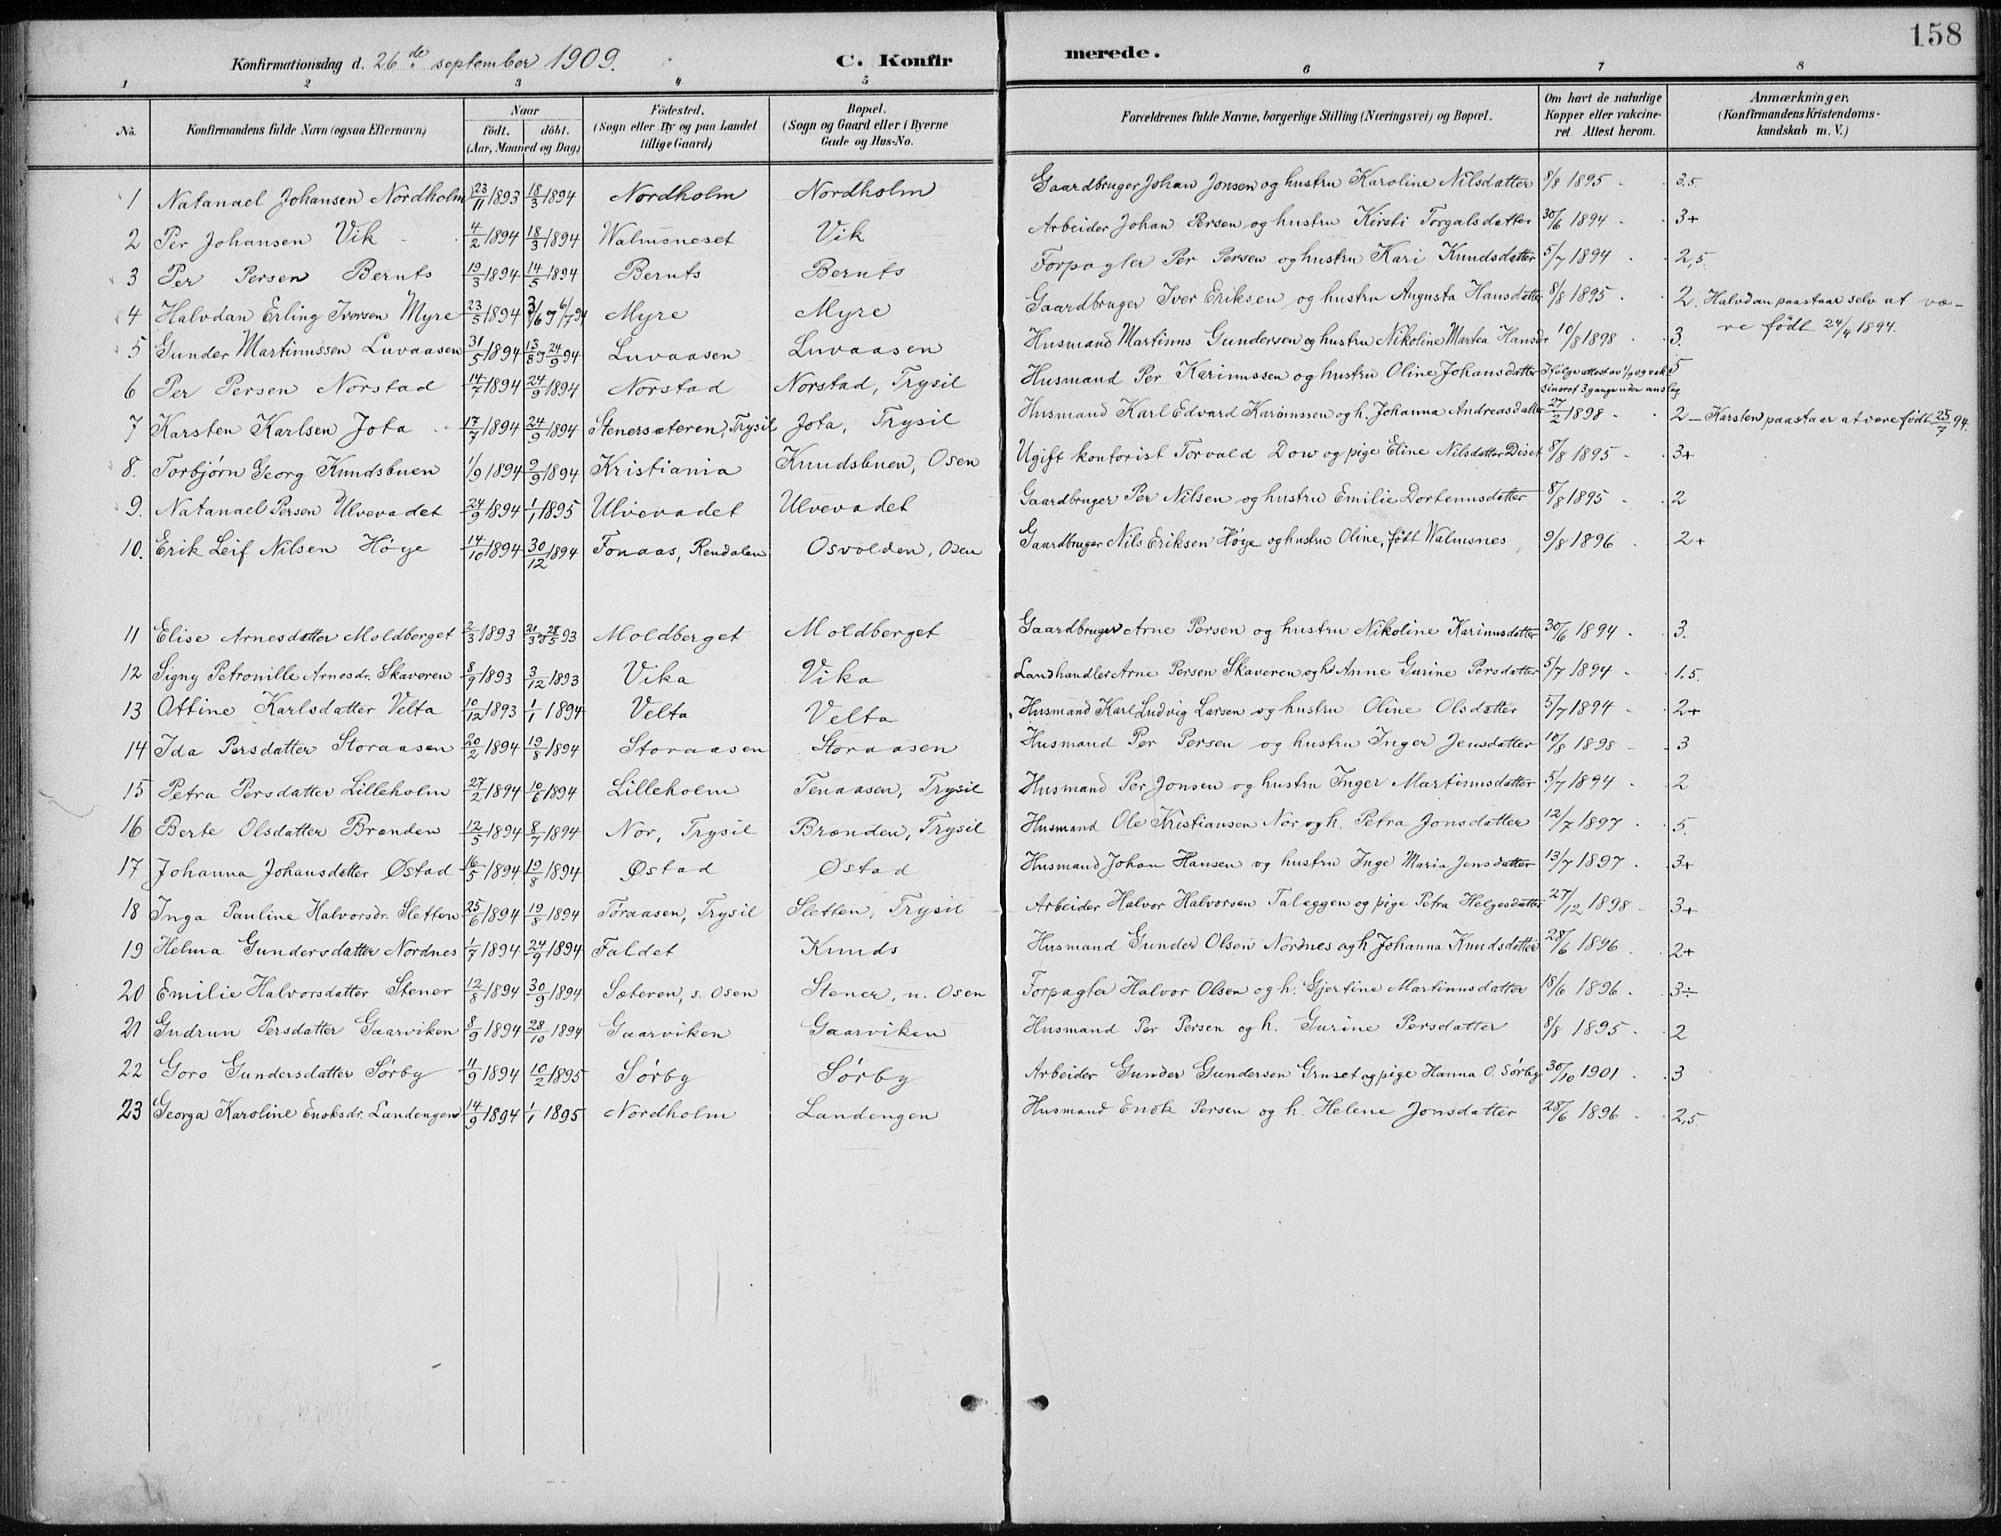 158
Konfirmationsdag d. 26de september 1909. C. Konfirmerede.
1 2 3 4 5 6 7 8
No. Konfirmandens fulde Navn (ogsaa Efternavn) Naar født. døbt. (Aar, Maaned og Dag) Fødested. (Sogn eller By og paa Landet tillige Gaard) Bopæl. (Sogn og Gaard eller i Byerne Gade og Hus-No. Forældrenes fulde Navne, borgerlige Stilling (Næringsvei) og Bopæl. Om havt de naturlige Kopper eller vakcineret. Attest herom. Anmærkninger. (Konfirmandens Kristendomskundskab m. V.)
1 Natanael Johansen Nordholm 23/11 1893 18/3 1894 Nordholm Nordholm Gaardbruger Johan Jonsen og hustru Karoline Nilsdatter 8/8 1895 3,5.
2 Per Johansen Vik 4/2 1894 18/3 1894 Walmsneset Vik Arbeider Johan Persen og hustru Kirsti Torgalsdatter 30/6 1894 3+
3 Per Persen Bernts 19/3 1894 14/5 1894 Bernts Bernts Forpagter Per Persen og hustru Kari Knudsdatter 5/7 1894 2,5.
4 Halvdan Erling Iversen Myre 23/5 1894 3/6 og 6/7 94 Myre Myre Gaardbruger Iver Eriksen og hustru Augusta Hansdatter 8/8 1895 2. Halvdan paastaar selv at væ-
re født 24/4 1894.
5 Gunder Martinussen Luvaasen 31/5 1894 13/8 og 24/9 94 Luvaasen Luvaasen Husmand Martinus Gundersen og hustru Nikoline Martea Hansdr 10/8 1898 3.
6 Per Persen Norstad 14/7 1894 24/9 1894 Norstad Norstad, Trysil Husmand Per Karinussen og hustru Oline Johansdatter Ifølge attest av 1/9 09 vak- 5
sineret 3 gange uden anslag
7 Karsten Karlsen Jota 17/7 1894 24/9 1894 Stenersæteren, Trysil Jota, Trysil Husmand Karl Edvard Karinussen og h. Johanna Andreasdatter 27/2 1898 2 – Karsten paastaar at være født 25/7 94.
8. Torbjørn Georg Knudsbuen 1/9 1894 9/9 1894 Kristiania Knudsbuen, Osen Ugift kontorist Torvald Dow og pige Eline Nilsdatter Diset 8/8 1895 3+
9. Natanael Persen Ulvevadet 24/9 1894 1/1 1895 Ulvevadet Ulvevadet Gaardbruger Per Nilsen og hustru Emilie Dortenusdatter 8/8 1895 2
10. Erik Leif Nilsen Høye 14/10 1894 30/12 1894 Fonaas, Rendalen Osvolden, Osen Gaardbruger Nils Eriksen Høye og hustru Oline, født Walmsnes 9/8 1896 2+
11 Elise Arnesdatter Moldberget 2/3 1893 21/3 og 28/5 93 Moldberget Moldberget Gaardbruger Arne Persen og hustru Nikoline Karinusdatter 30/6 1894 3.
12 Signy Petronille Arnesdr. Skaveren 8/9 1893 3/12 1893 Vika Vika Landhandler Arne Persen Skaveren og h. Anne Gurine Persdatter 5/7 1894 1.5.
13 Ottine Karlsdatter Velta 10/12 1893 1/1 1894 Velta Velta Husmand Karl Ludvig Larsen og hustru Oline Olsdatter 5/7 1894 2+
14 Ida Persdatter Storaasen 20/2 1894 19/8 1894 Storaasen Storaasen Husmand Per Persen og hustru Inger Jensdatter 10/8 1898 3
15 Petra Persdatter Lilleholm 27/2 1894 10/6 1894 Lilleholm Tenaasen, Trysil Husmand Per Jonsen og hustru Inger Martinusdatter 5/7 1894 2
16 Berte Olsdatter Brænden 12/5 1894 8/7 1894 Nor, Trysil Brænden, Trysil Husmand Ole Kristiansen Nor og h. Petra Jonsdatter 12/7 1897 5.
17 Johanna Johansdatter Østad 16/5 1894 19/8 1894 Østad Østad Husmand Johan Hansen og hustru Inge Maria Jensdatter 13/7 1897 3+
18 Inga Pauline Halvorsdr. Sletten 25/6 1894 19/8 1894 Føraasen, Trysil Sletten, Trysil Arbeider Halvor Halvorsen Talæggen og pige Petra Helgesdatter 27/12 1898 3+
19 Helma Gundersdatter Nordnes 1/7 1894 24/9 1894 Faldet Knuds Husmand Gunder Olsen Nordnes og h. Johanna Knudsdatter 28/6 1896 2+
20 Emilie Halvorsdatter Stener 12/8 1894 30/9 1894 Sæteren, s. Osen Stener, n. Osen Forpagter Halvor Olsen og h. Gjertine Martinusdatter 18/6 1896 3÷
21 Gudrun Persdatter Gaarviken 8/9 1894 28/10 1894 Gaarviken Gaarviken Husmand Per Persen og h. Gurine Persdatter 8/8 1895 2
22 Goro Gundersdatter Sørby 11/9 1894 10/2 1895 Sørby Sørby Arbeider Gunder Gundersen Gruset og pige Hanna O. Sørby 30/10 1901 3
23 Georga Karoline Enoksdr. Landengen 14/9 1894 1/1 1895 Nordholm Landengen Husmand Enok Persen og h. Helene Jonsdatter 28/6 1896 2,5.